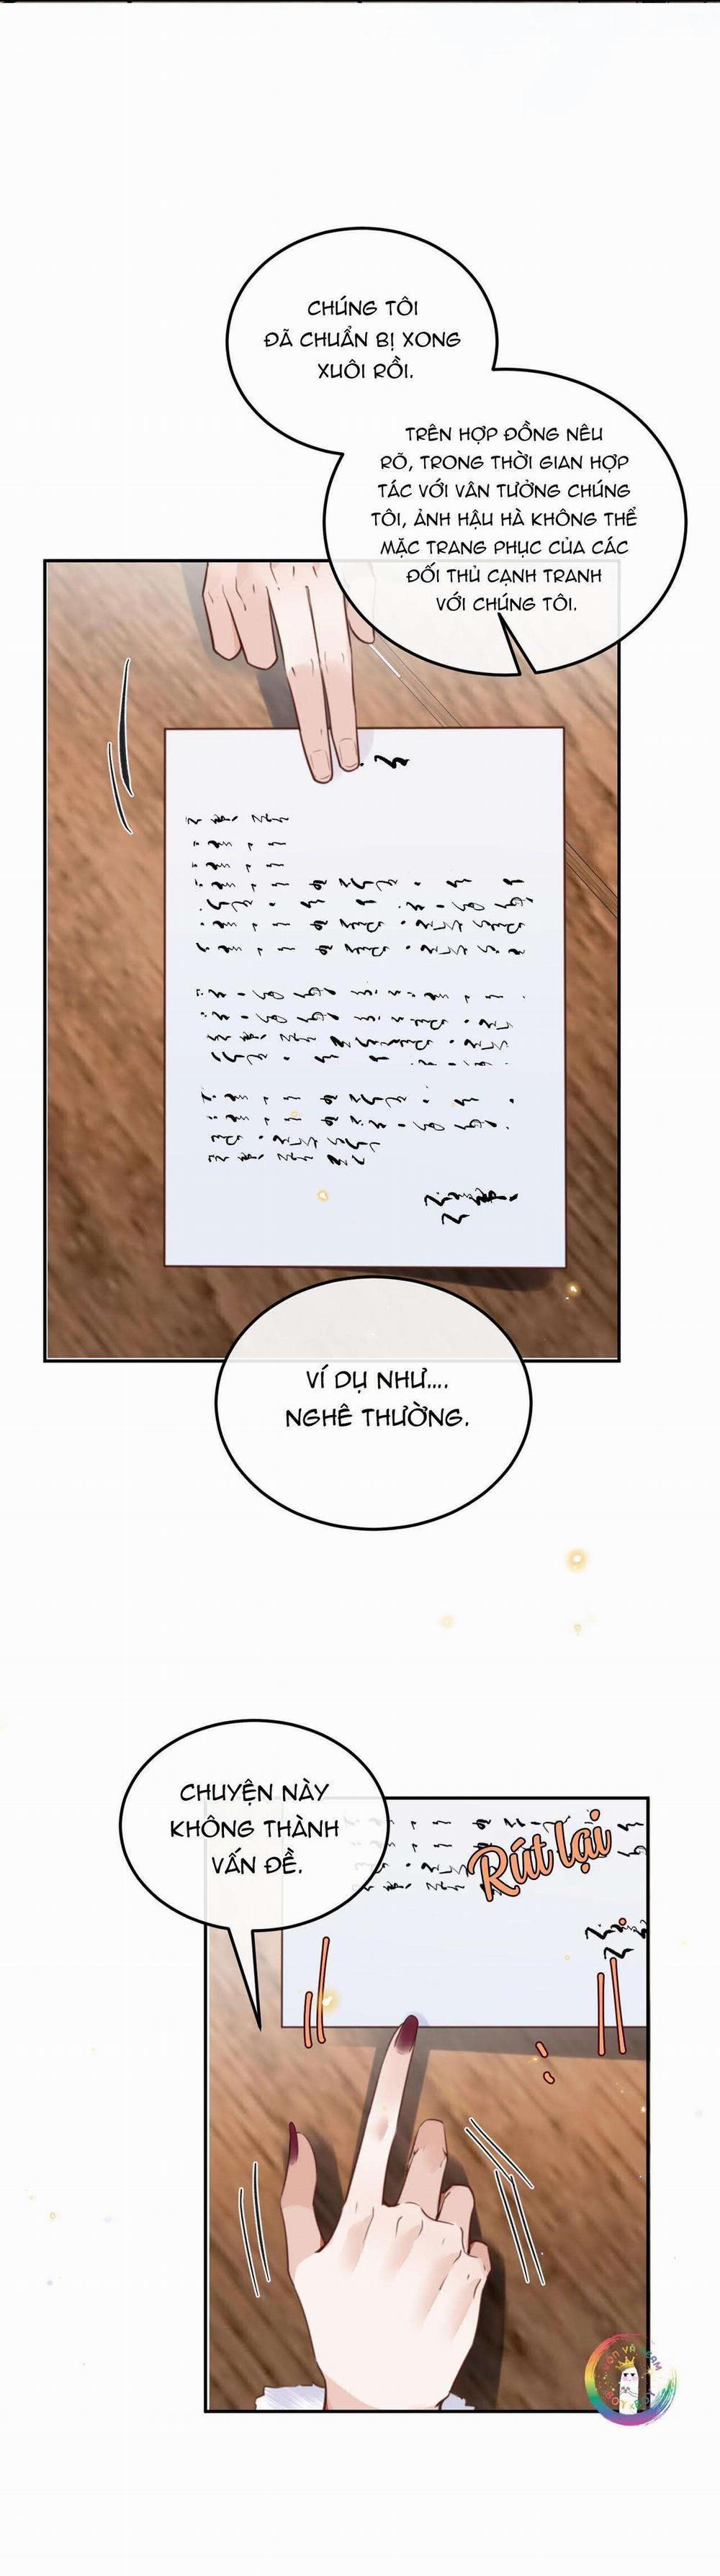 CHÚNG TÔI
ĐÃ CHUẨN BỊ XONG
XUÔI RỒI.
TRÊN HỢP ĐỒNG NÊU
RÕ, TRONG THỜI GIAN HỢP
TÁC VỚI VÂN TƯỞNG CHÚNG
TÔI, ẢNH HẬU HÀ KHÔNG THỂ
MẶC TRANG PHỤC CỦA CÁC
ĐỐI THỦ CẠNH TRANH
VỚI CHÚNG TÔI.
VÍ DỤ NHƯ....
NGHÊ THƯỜNG.
CHUYỆN NÀY
KHÔNG THÀNH
VẤN ĐỀ.
Rút lại